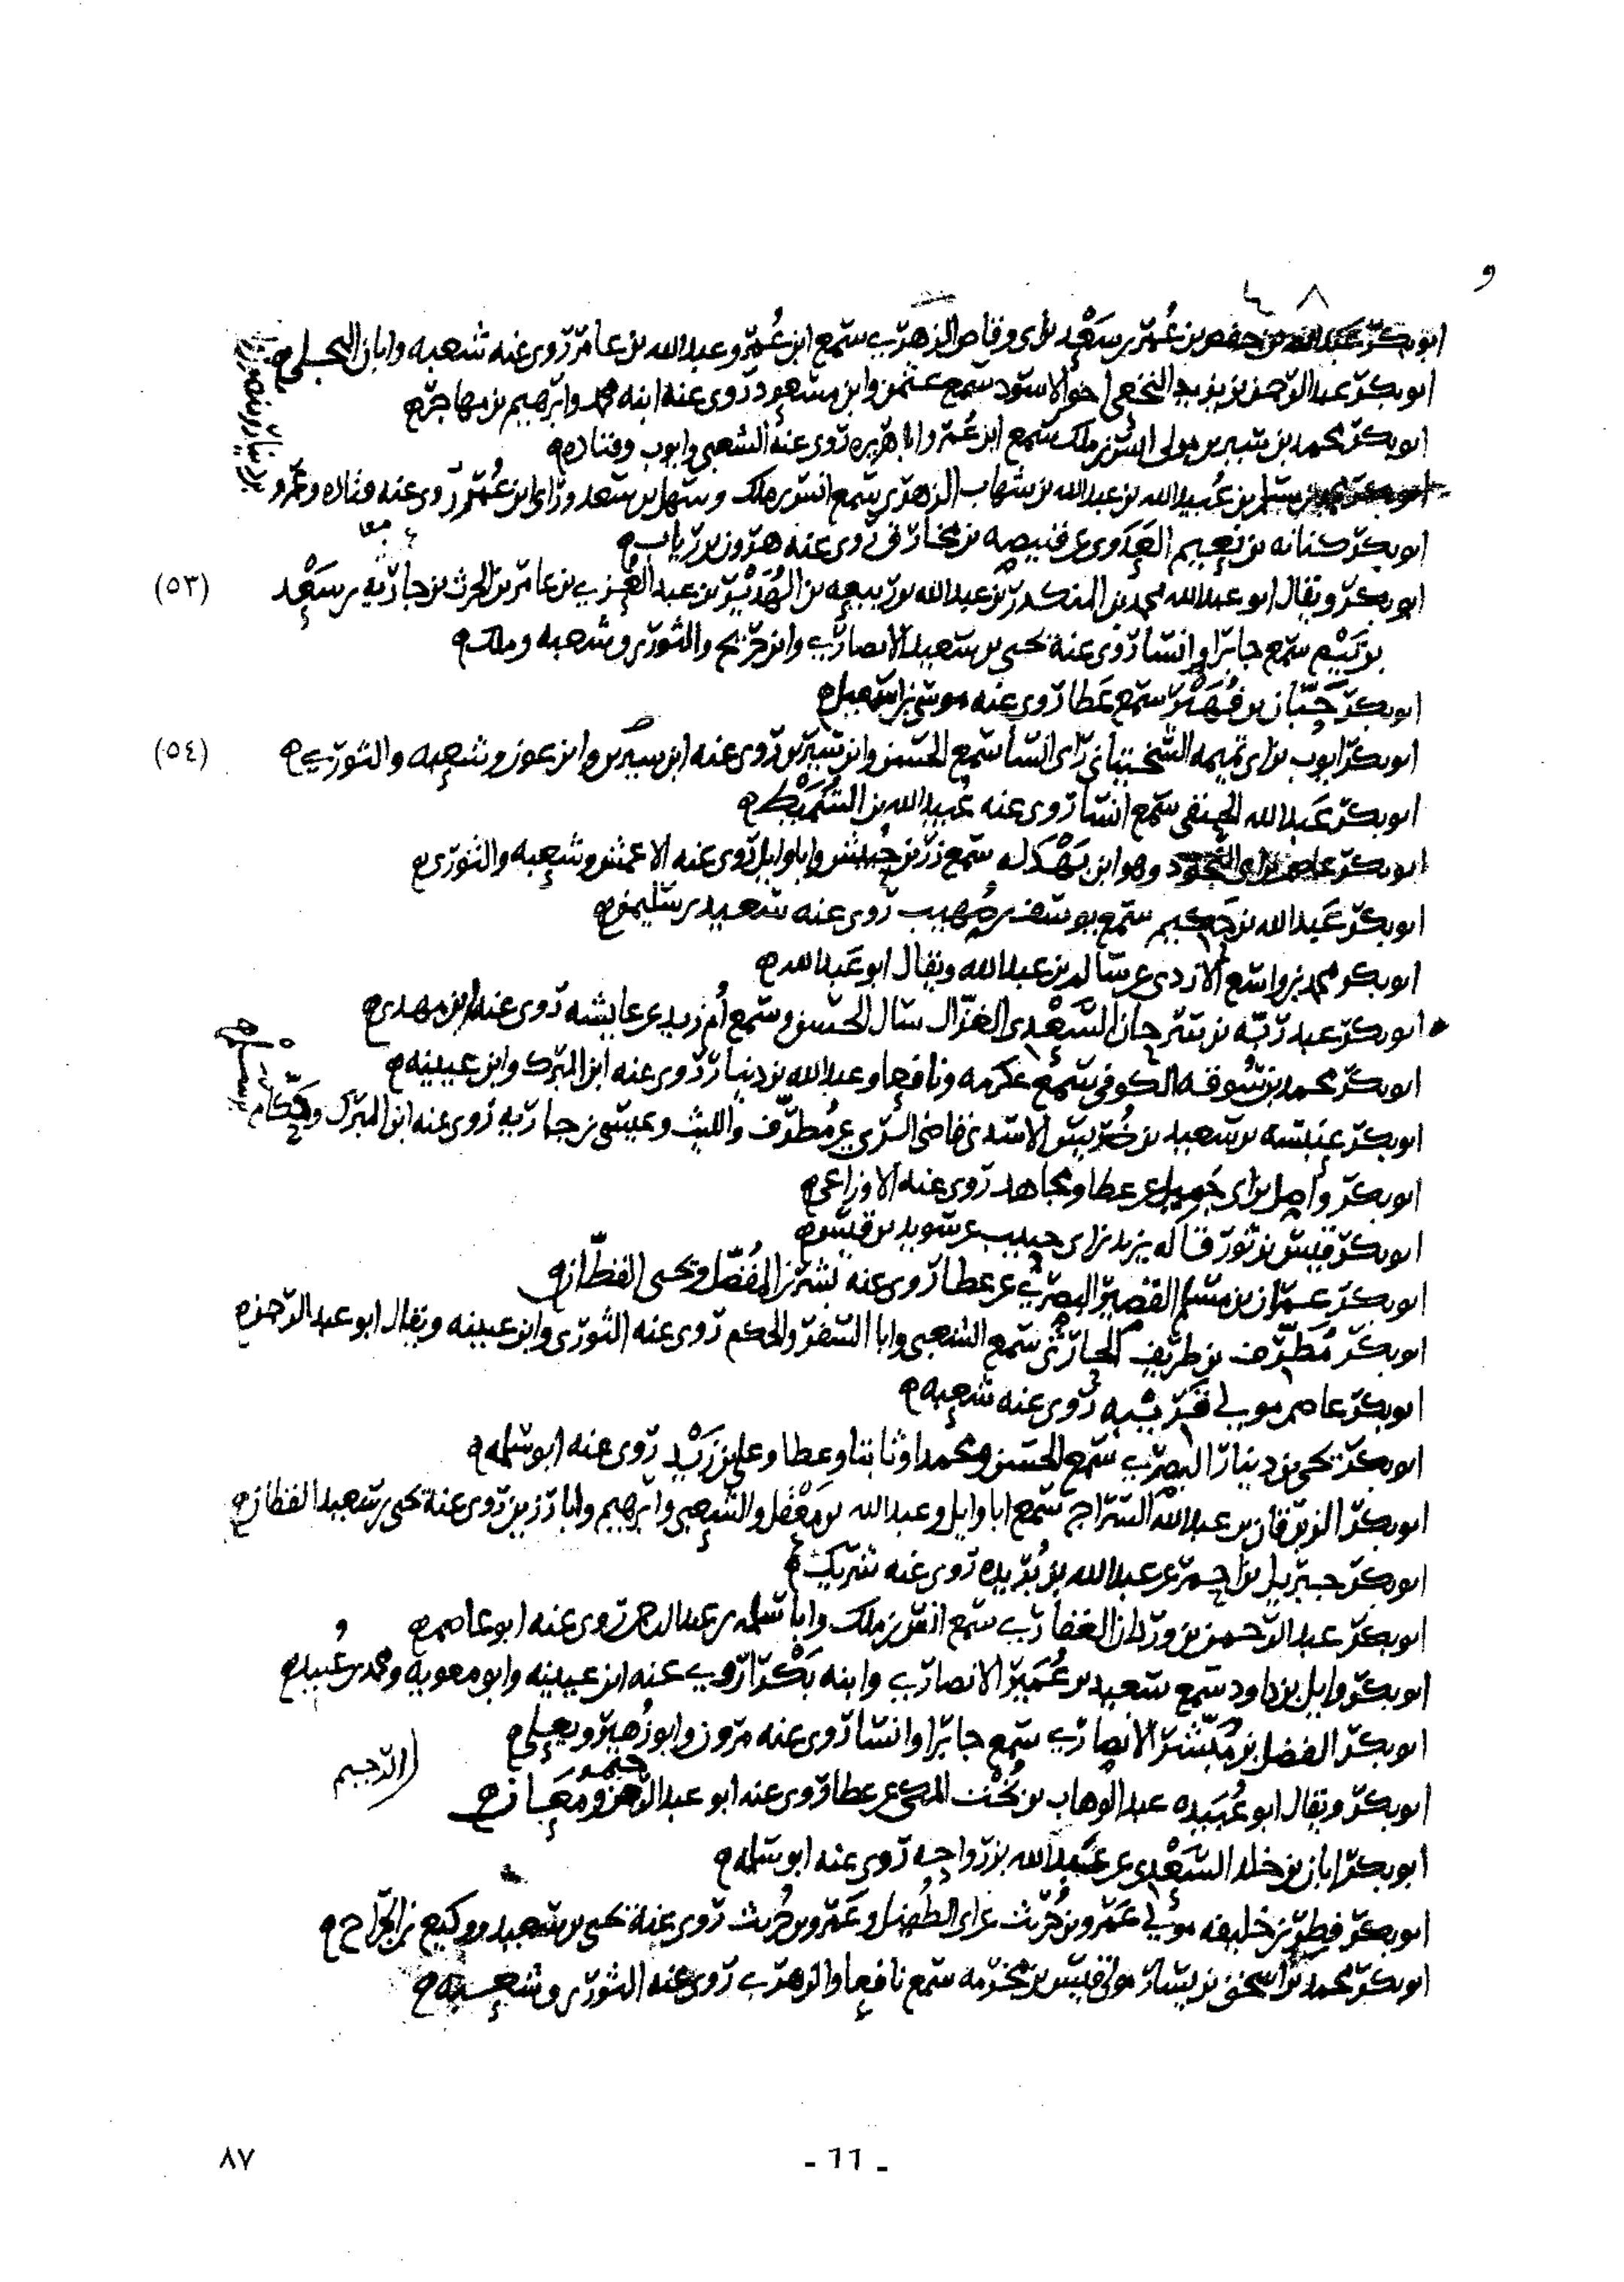 و
٤ ٨
ابو بكر عبد الله بن حفص بن عمر بن سعد بن ابي وقاص الزهري سمع ابن عمر وعبد الله بن عامر روى عنه شعبه وابان البجلي
ابو بكر عبد الرحمن بن يزيد النخعي اخو الاسود سمع عثمن وابن مسعود روى عنه ابنه محمد وابرهيم بن مهاجر
ابو بكر محمد بن سيرين مولى انس بن ملك سمع ابن عمر وابا هريره روى عنه الشعبي وايوب وقتاده
ابو بكر محمد بن مسلم بن عبيد الله بن عبد الله بن شهاب الزهري سمع انس بن ملك وسهل بن سعد وراى ابن عمر روى عنه قتاده وعمرو
بن دينار
ابو بكر كنانه بن نعيم العدوي عن قبيصه بن مخارق روى عنه هرون بن رياب
ابو بكر ويقال ابو عبد الله محمد بن المنكدر بن عبد الله بن ربيعه بن الهدير بن عبد العزى بن عامر بن الحرث بن حارثه بن سعد
(٥٣)
بن تيم سمع جابرا وانسا روى عنه يحيى بن سعيد الانصاري وابن جريج والثوري وشعبه وملك
ابو بكر حسان بن سمع عطا روى عنه موسى بن اسمعيل
ابو بكر ايوب بن ابي تميمه السختياني راى انسا سمع الحسن وابن سيرين روى عنه ابن سيرين وابن عون وشعبه والثوري
(٥٤)
ابو بكر عبد الله الحنفي سمع انسا روى عنه عبيد الله بن الشميط
ابو بكر عاصم بن ابي النجود وهو ابن بهدله سمع زر بن حبيش وابا وايل روى عنه الاعمش وشعبه والثوري
ابو بكر عبد الله بن حكيم سمع يوسف بن صهيب روى عنه سعيد بن سليمن
ابو بكر محمد بن واسع الازدي عن سالم بن عبد الله ويقال ابو عبد الله
ابو بكر عبد ربه بن السعدي الغزال سال الحسن وسمع ام زيد عن عايشه روى عنه ابن مهدي
ابو بكر محمد بن سوقه الكوفي سمع عكرمه ونافعا وعبد الله بن دينار روى عنه ابن المبرك وابن عيينه
ابو بكر عنبسه بن سعيد بن ضريس الاسدي قاضي الري عن مطرف والليث وعيسى بن جاريه روى عنه ابن المبرك وحكام
ابو بكر واصل بن ابي جميل عن عطا ومجاهد روى عنه الاوزاعي
ابو بكر قيس بن ثور قاله يزيد بن ابي حبيب عن سويد بن قيس
ابو بكر عمران بن مسلم القصير البصري عن عطا روى عنه بشر بن المفضل ويحيى القطان
ابو بكر مطرف بن طريف الحارثي سمع الشعبي وابا السفر والحكم روى عنه الثوري وابن عيينه ويقال ابو عبد الرحمن
ابو بكر عاصم مولى قريبه روى عنه شعبه
ابو بكر يحيى بن دينار البصري سمع الحسن ومحمدا وثابتا وعطا وعلي بن زيد روى عنه ابو سلمه
ابو بكر الزبرقان بن عبد الله السراج سمع ابا وايل وعبد الله بن معقل والشعبي وابرهيم وابا رزين روى عنه يحيى بن سعيد القطان
ابو بكر جبريل بن احمر عن عبد الله بن بريده روى عنه شريك
ابو بكر عبد الرحمن بن وردان الغفاري سمع انس بن ملك وابا سلمه بن عبد الرحمن روى عنه ابو عاصم
ابو بكر وايل بن داود سمع سعيد بن عمير الانصاري وابنه بكرا روى عنه ابن عيينه وابو معويه ومحمد بن عبيد
ابو بكر الفضل بن مبشر الانصاري سمع جابرا وانسا روى عنه مرون وابو زهير ويعلى
ابو بكر ويقال ابو عبيده عبد الوهاب بن بخت المكي عن عطا روى عنه ابو عبد الرحيم ومعان
الرحيم
ابو بكر ابان بن خلد السعدي عن عبيد الله بن رواحه روى عنه ابو سلمه
ابو بكر فطر بن خليفه مولى عمرو بن حريث عن ابي الطفيل وعمرو بن حريث روى عنه يحيى بن سعيد ووكيع بن الجراح
ابو بكر محمد بن اسحق بن يسار مولى قيس بن مخرمه سمع نافعا والزهري روى عنه الثوري وشعبه
- 11 -
٨٧